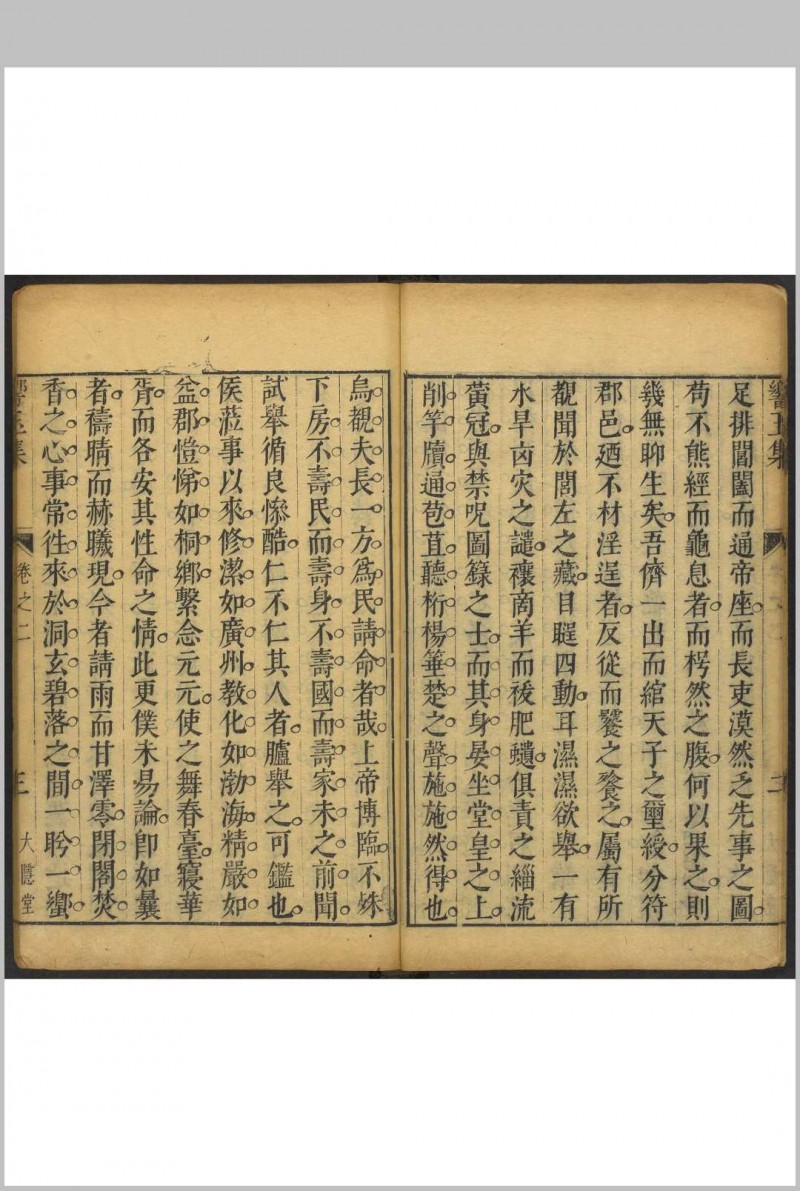 足排閶闔而通帝座而長吏漠然乏先事之圖
苟不熊經而龜息者而枵然之腹何以果之則
幾無聊生矣吾儕一出而綰天子之璽綬分符
郡邑廼不材淫逞者反從而饕之餮之屬有所
覩聞於閭左之藏目瞠四動耳濕濕欲舉一有
水旱卤灾之譴禳啇羊而祓肥䗤俱責之緇流
黄冠與禁呪圖籙之士而其身晏坐堂皇之上
削竿牘通苞苴聽桁楊箠楚之聲施施然得也
烏覩夫長一方為民請命者哉上帝博臨不姝
下房不壽民而壽身不壽國而壽家未之前聞
試舉循良慘酷仁不仁其人者臚舉之可鑑也
侯蒞事以來修潔如廣州教化如渤海精嚴如
益郡愷悌如桐鄉繫念元元使之舞春臺寢華
胥而各安其性命之情此更僕未易論卽如曩
者禱晴而赫曦現今者請雨而甘澤零閉閣焚
香之心事常徃來於洞玄碧落之間一肹一蠁
卷之二
三
大隱堂